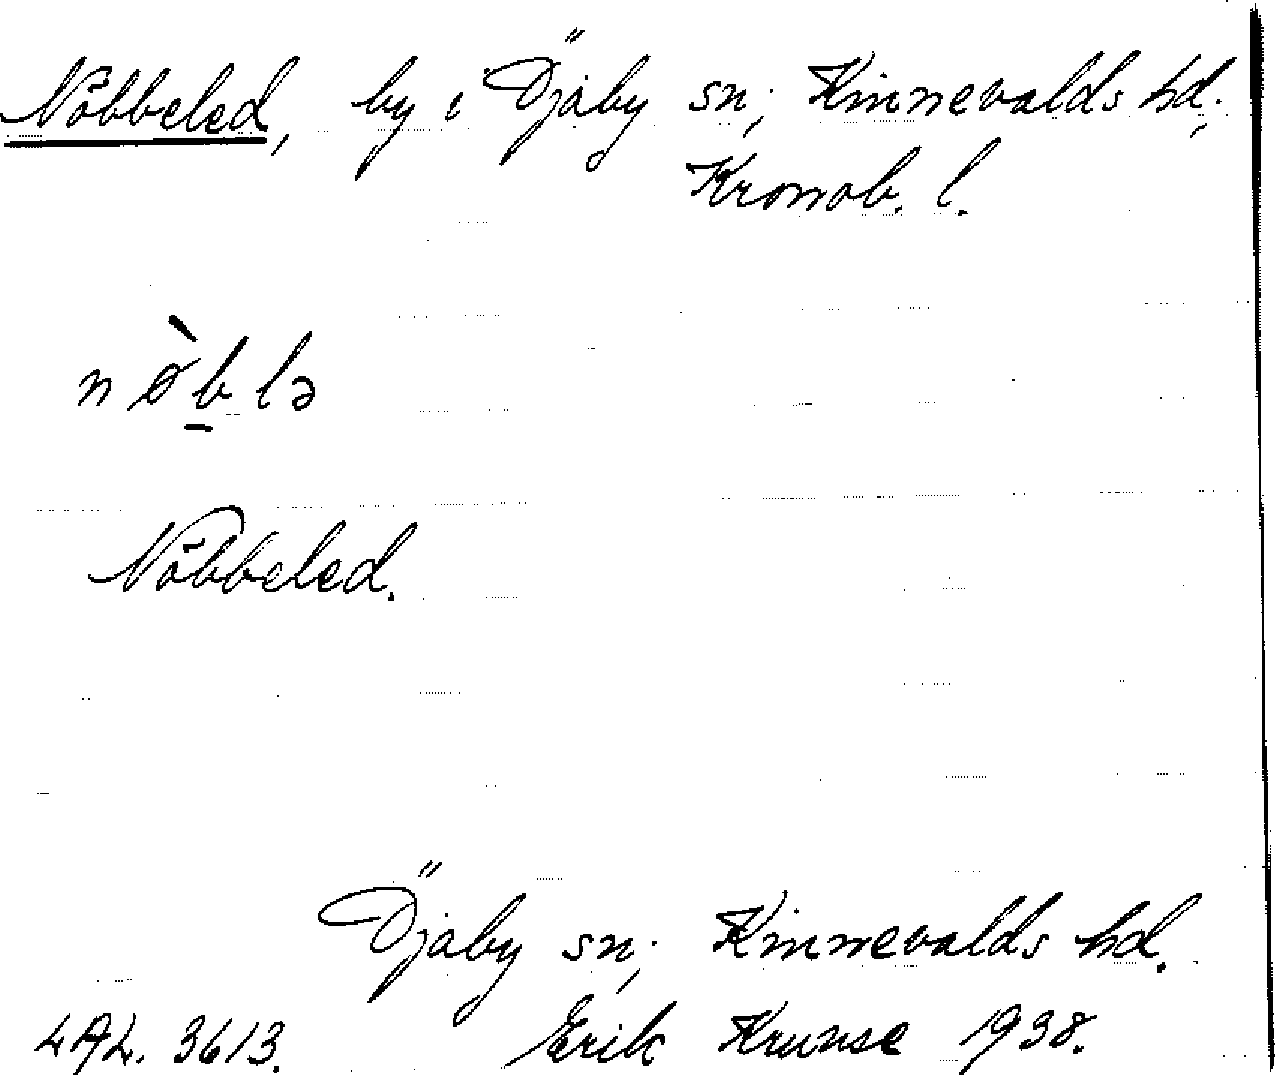 Nöbbeled, by i Öjaby sn, Kinnevalds hd,
Kronob. l.
nø̀b̠lə
Nöbbeled.
Öjaby sn, Kinnevalds hd.
LAL. 3613. Erik Krunse 1938.